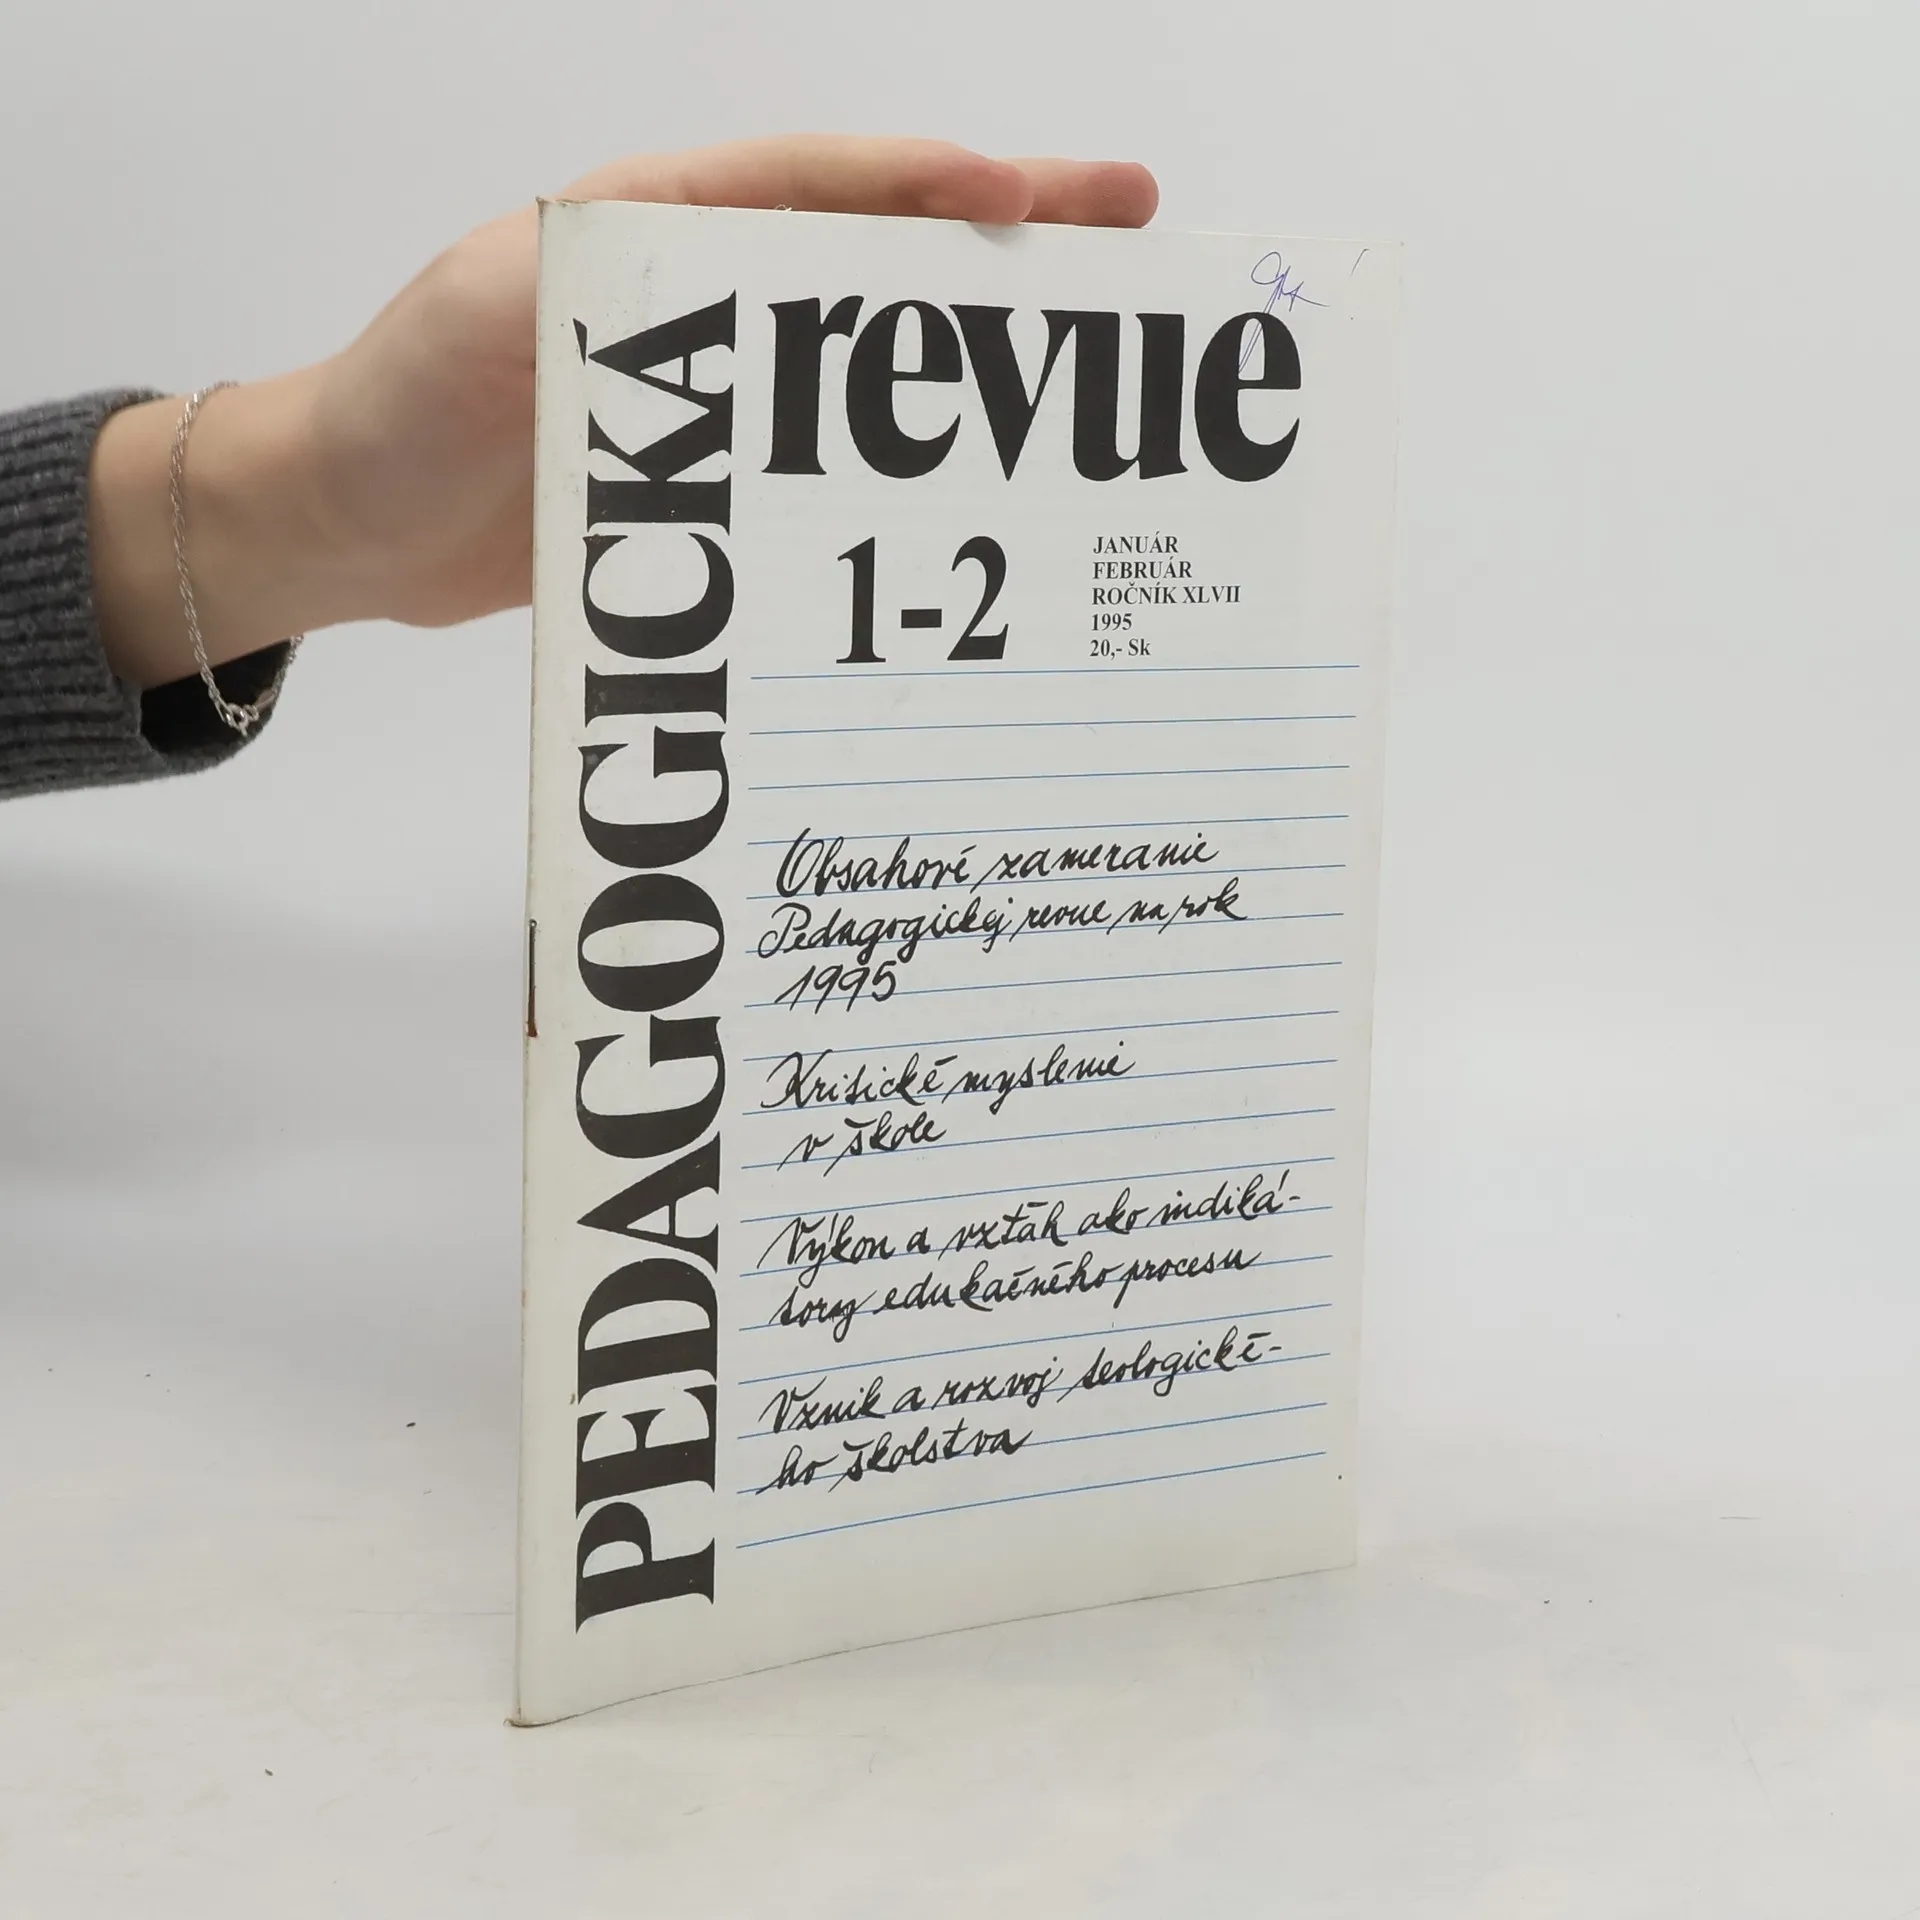 PEDAGOGICKÁ
revue
1-2
JANUÁR
FEBRUÁR
ROČNÍK XLVII
1995
20,- Sk
Obsahové zameranie
Pedagogickej revue na rok
1995
Kritické myslenie
v škole
Výkon a vzťah ako indiká-
tory edukačného procesu
Vznik a rozvoj teologické-
ho školstva